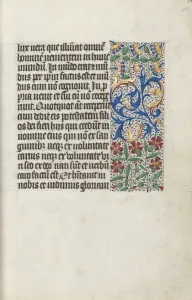 lux vera que illuminat omnē
hominē venientem in hunc
mundū. In mūdo erat et mū
dus per ipm̄ factus est et mū
dus eum nō cognovit. In p
pria venit et sui eū nō rece
perūt. Quotquot aūt receperūt
eum dedit eis potestatem filios
dei fieri hijs qui credūt in
nomine eius qui nō ex san
guinibꝫ neqꝫ ex voluntate
carnis neqꝫ ex voluntate
viri sed ex deo nati sūt et verbū
caro factū est. Et habitavit in
nobis et vidimus gloriam